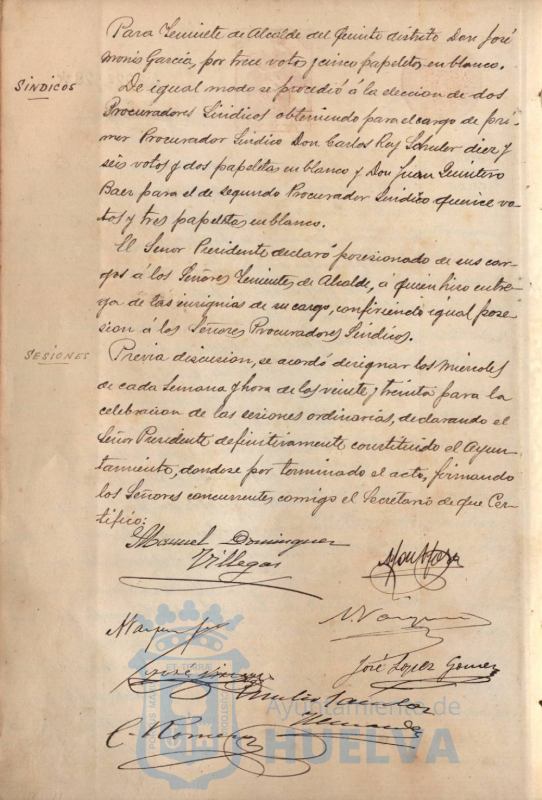 Para Teniente de Alcalde del Quinto distrito Don José
Monis García, por trece votos y cinco papeletas en blanco.
SINDICOS
De igual modo se procedió á la eleccion de dos
Procuradores Sindicos obteniendo para el cargo de pri-
mer Procurador Sindico Don Carlos Rey Schuler diez y
seis votos y dos papeletas en blanco y Don Juan Quintero
Baez para el de segundo Procurador Sindico quince vo-
tos y tres papeletas en blanco.
El Señor Presidente declaró posesionado de sus car-
gos á los Señores Tenientes de Alcalde, á quien hizo entre-
ga de las insignias de su cargo, confiriendo igual pose-
sion á los Señores Procuradores Sindicos.
SESIONES
Previa discusion, se acordó designar los miercoles
de cada semana y hora de las veinte y treinta para la
celebracion de las sesiones ordinarias, declarando el
Señor Presidente definitivamente constituido el Ayun-
tamiento, dandose por terminado el acto, firmando
los Señores concurrentes conmigo el Secretario de que Cer-
tifico:
Manuel Dominguez
Villegas
José Lopez Gomez
C. Romero
Ayuntamiento de
HUELVA